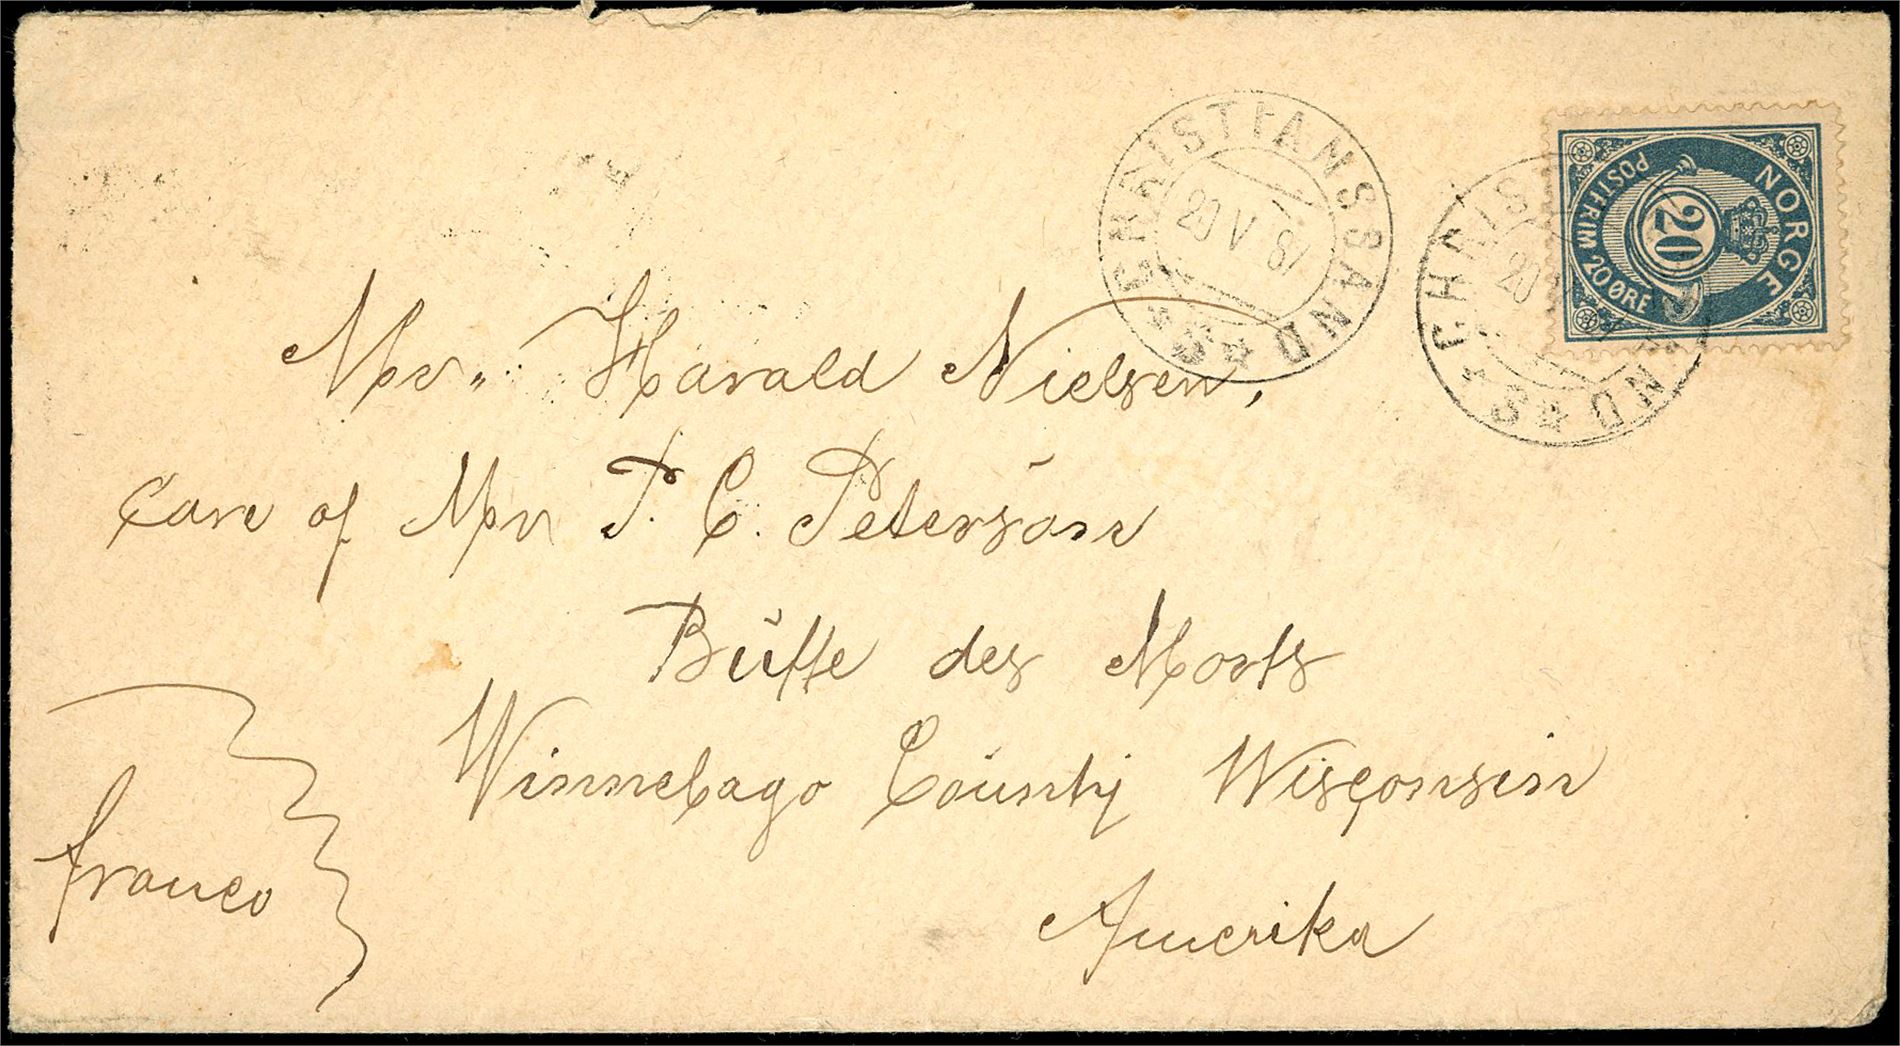 NORGE
POSTFRIM 20 ØRE
20
CHRISTIANSSAND S
20 V 87
CHRIS ND S
20
Mr. Harald Nielsen,
Care of Mr P. C. Peterson
Butte des Morts
Winnebago County Wisconsin
Amerika
franco